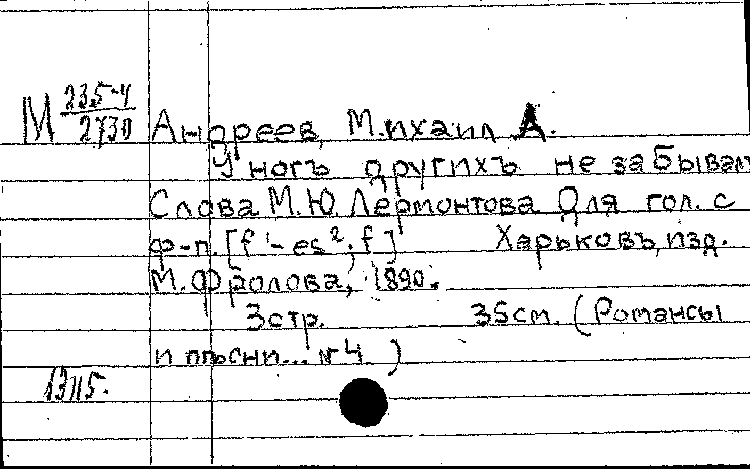 М 235-4
2730
Андреев, Михаил А.
У ногъ другихъ не забывал
Слова М.Ю. Лермонтова Для гол. с
ф-п. [f¹-es²; f] Харьковъ, изд.
М. Фролова, 1890.
3 стр. 35 см. (Романсы
и пѣсни... №4.)
13115.